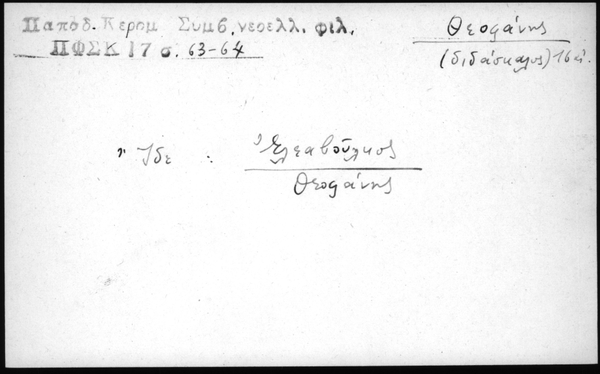 Παπαδ. Κεραμ Συμβ. νεοελλ. φιλ.
ΠΦΣΚ 17 σ. 63-64
Θεοφάνης
(διδάσκαλος) 16 αἰ.
Ἴδε : Ἐλεαβοῦλκος
Θεοφάνης